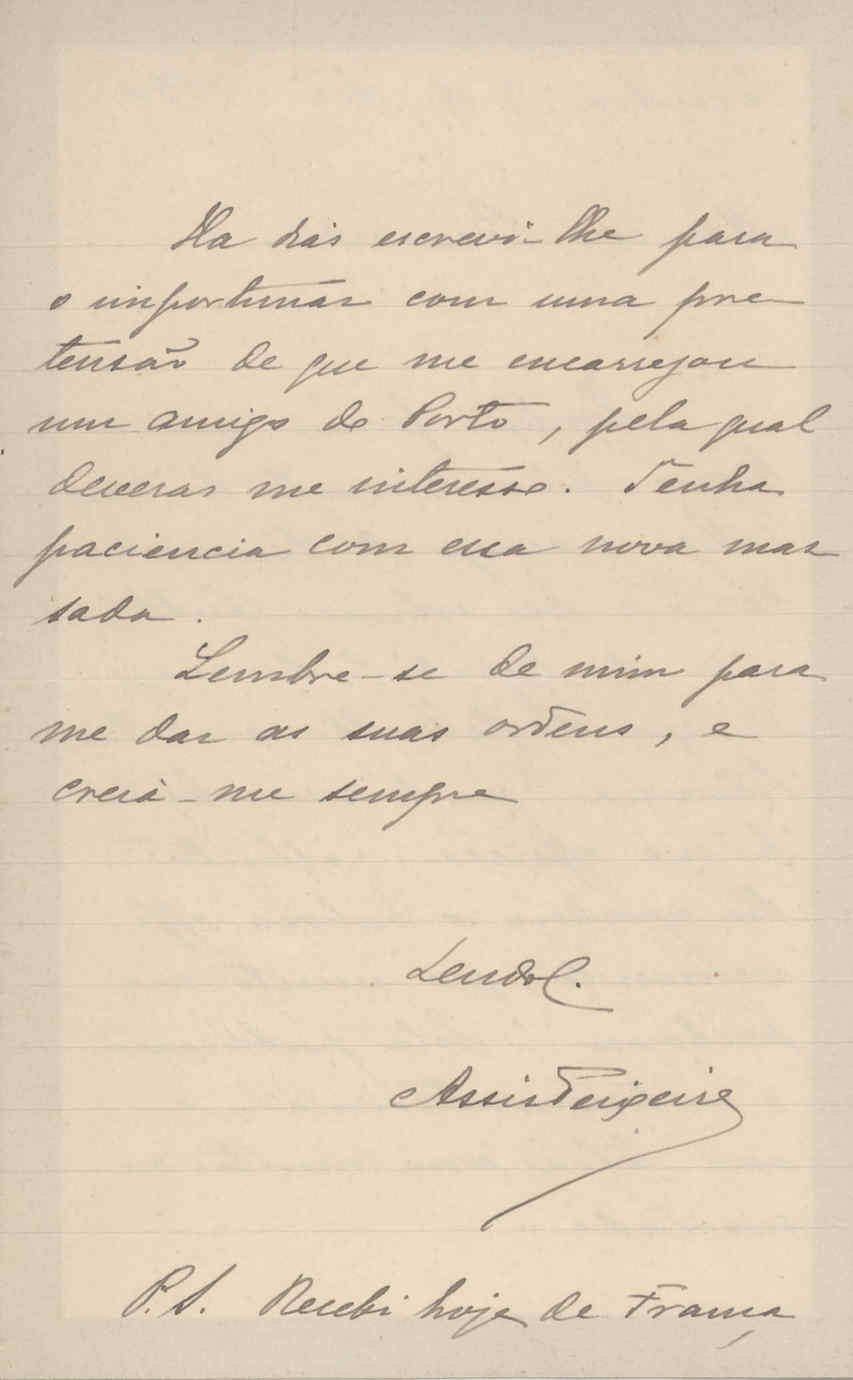 Ha dias escrevi-lhe para
o importunar com uma pre-
tensão de que me encarregou
um amigo do Porto, pela qual
deveras me interesso. Tenha
paciencia com essa nova mas-
sada.
Lembre-se de mim para
me dar as suas ordens, e
creia-me sempre
Assis Teixeira
P.S. Recebi hoje de França